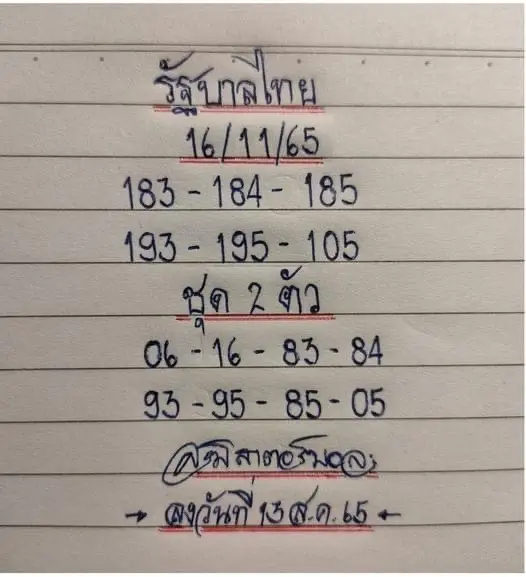 รัฐบาลไทย
16/11/65
183 - 184 - 185
193 - 195 - 105
ชุด 2 ตัว
06 - 16 - 83 - 84
93 - 95 - 85 - 05
→ ลงวันที่ 13 ส.ค. 65 ←